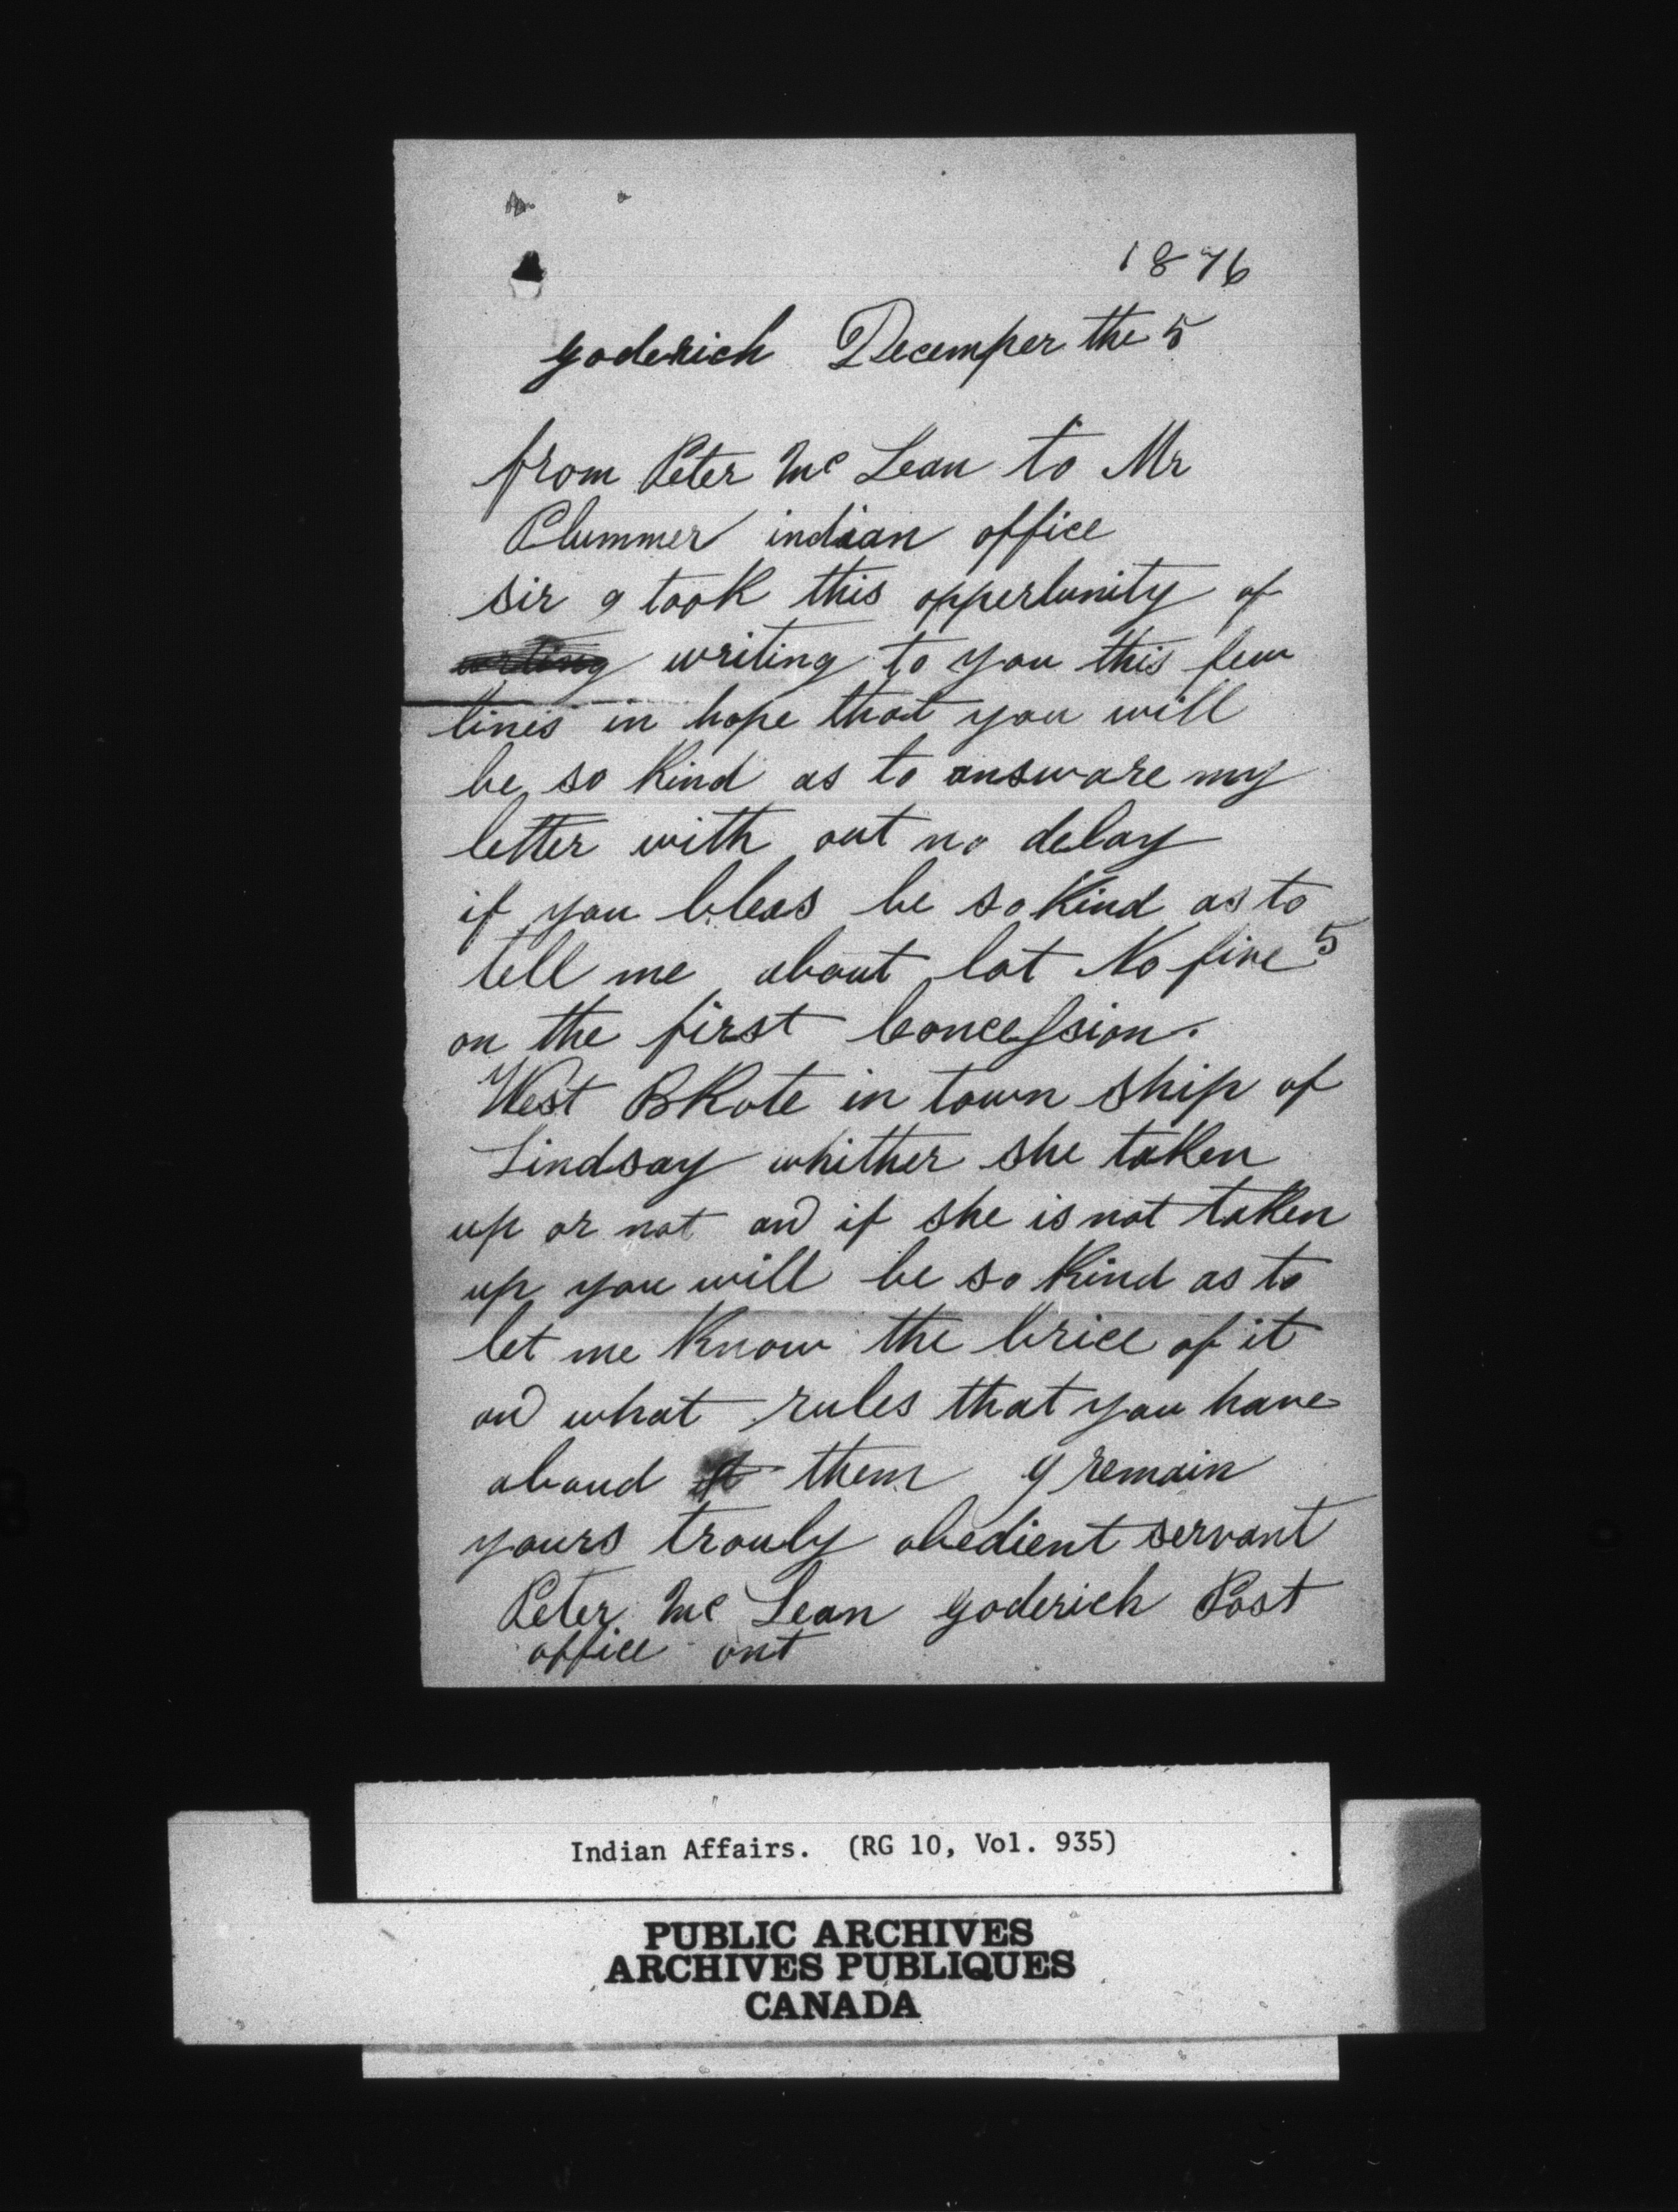 1876
goderich Decemper the 5
from Peter Mc Lean to Mr
Plummer indian office
sir I took this opperlunity of
writing to you this few
lines in hope that you will
be so kind as to answare my
letter with out no delay
if you bleas be so kind as to
tell me about lot No five 5
on the first Concession.
West BRote in town ship of
Lindsay whither she taken
up or not and if she is not taken
up you will be so kind as to
let me know the brice of it
and what rules that you have
aboud them I remain
yours trouly obedient servant
Peter Mc Lean goderich Post
office ont
Indian Affairs. (RG 10, Vol. 935)
PUBLIC ARCHIVES
ARCHIVES PUBLIQUES
CANADA